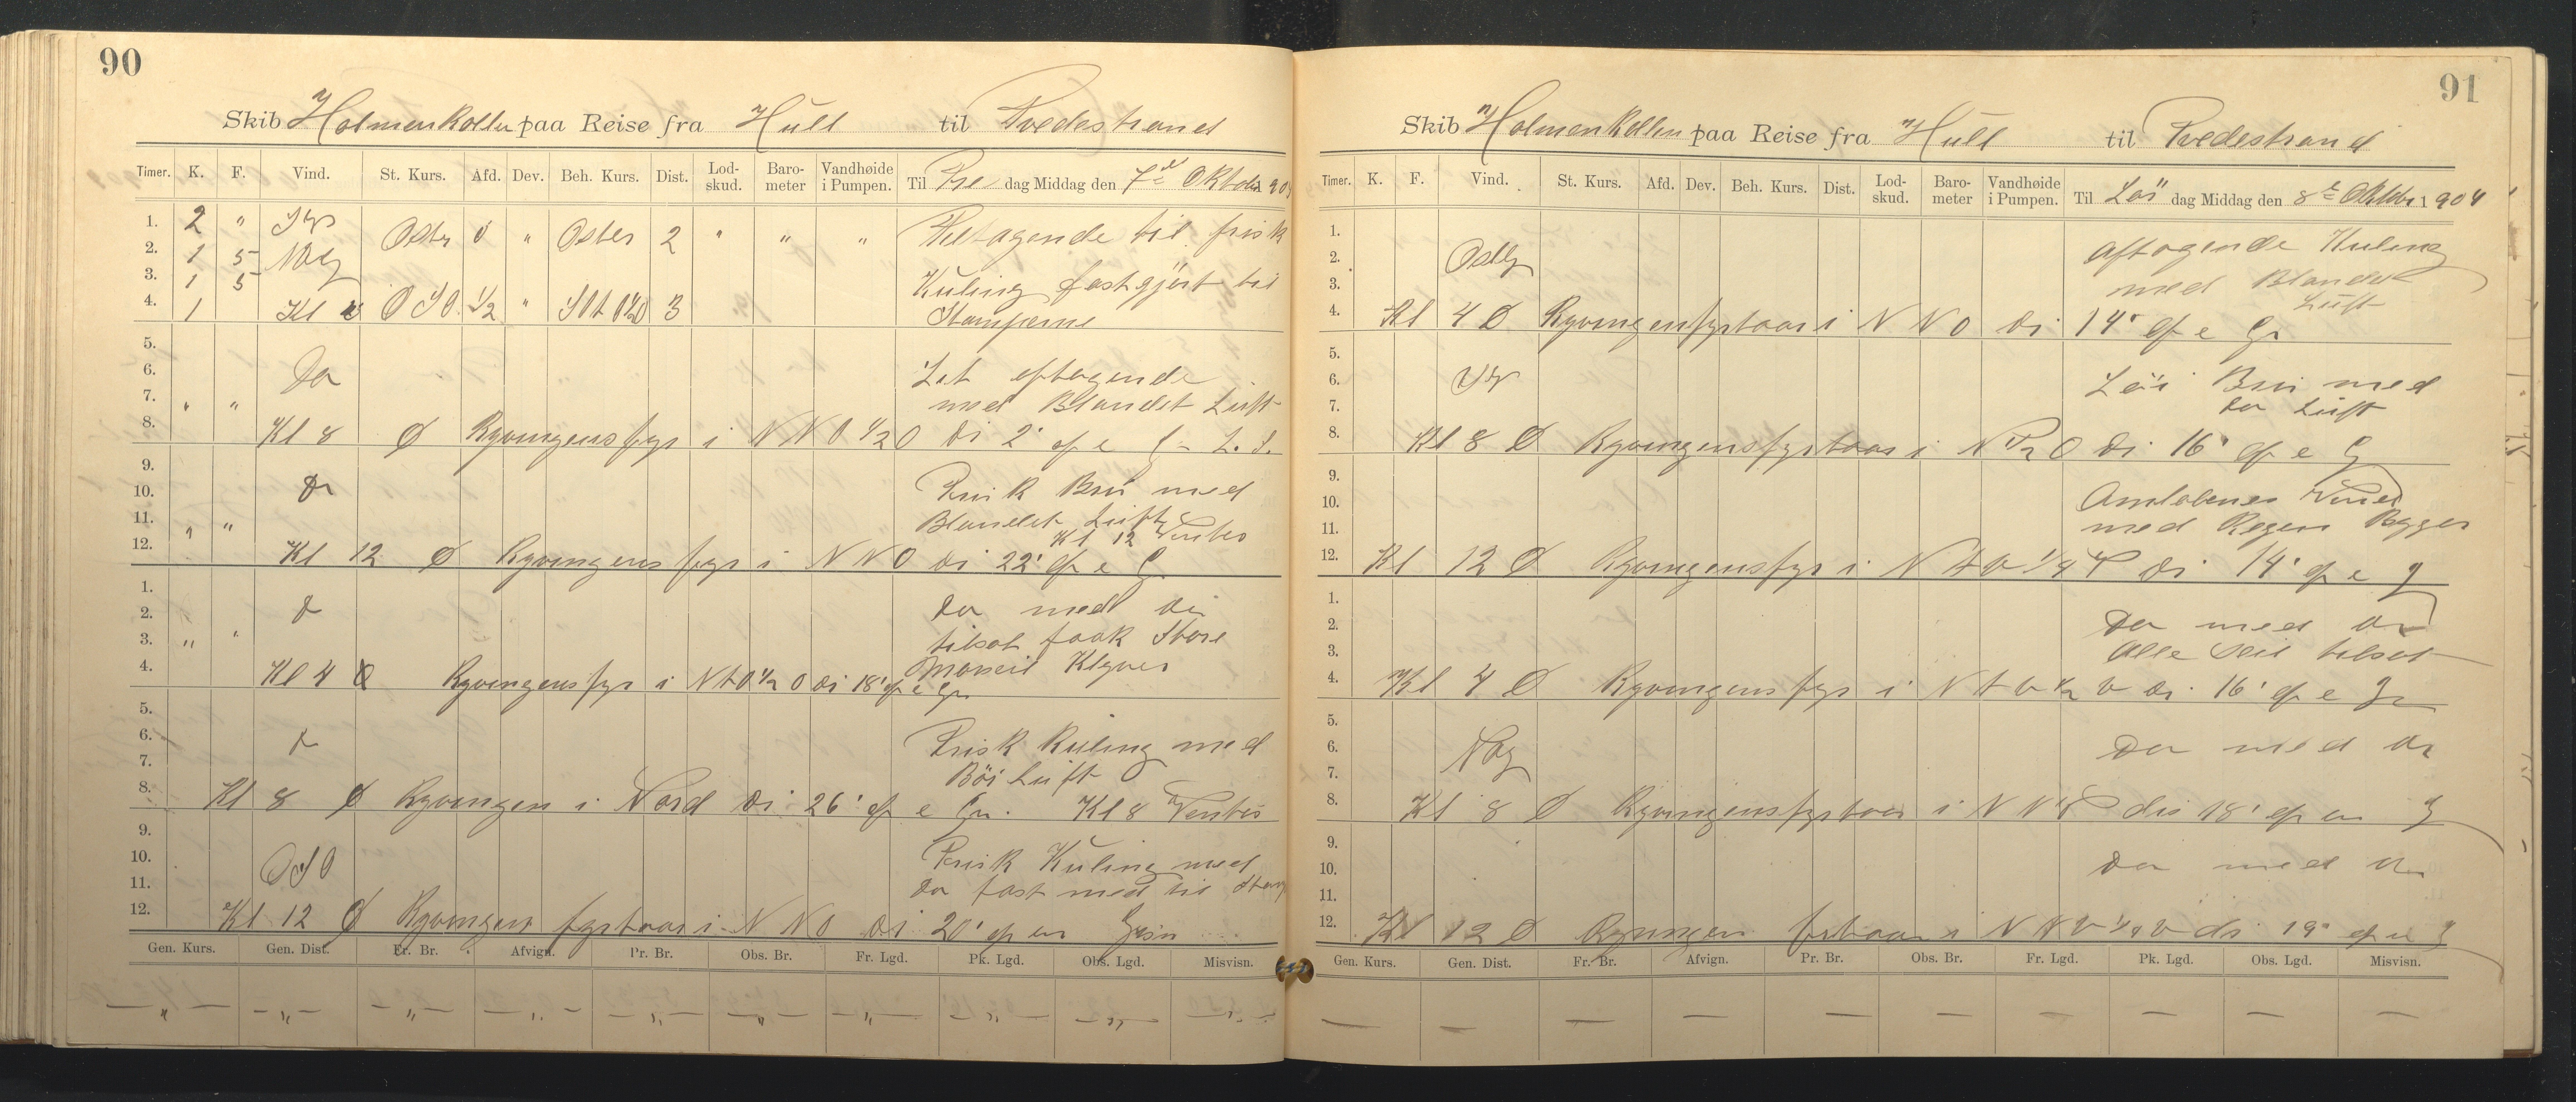 90
Skib Holmenkollen paa Reise fra Hull til Tvedestrand
Timer. K. F. Vind. St. Kurs. Afd. Dev. Beh. Kurs. Dist. Lod-skud. Baro-meter Vandhøide i Pumpen. Til Fre dag Middag den 7de Oktober 1904
1. 2 " Syd Tiltagende til frisk
2. 1 5 Oster 0 " Oster 2 " " "
3. 1 5 Kuling fastgjort til
4. 1 Kl 4 OSO 1/2 " 3 Stumperne
5.
6. Do Let aftagende
7. " " med Blandet Luft
8. Kl 8 Ø Ryvingens fyr i NNO 1/2 O Di 2' af e G
9.
10. Do Frisk Bris med
11. " " Blandet Luft
12. Kl 12 Ø Ryvingens fyr i NNO Di 22' af e G Kl 12 Vendes
1.
2. Do Do med Do
3. " " tilsat Fok Store
4. Kl 4 Ø Ryvingens fyr i NtO 1/2 O Di 18' af e Gn Klyver
5.
6. Do Frisk Kuling med
7. Böi Luft
8. Kl 8 Ø Ryvingen i Nord Di 26' af e Gn. Kl 8 Vendes
9.
10. OSO Frisk Kuling med
11. Do fast med til
12. Kl 12 Ø Ryvingen fyrtaar i NNO Di 20' af en Gisn
Gen. Kurs. Gen. Dist. Fr. Br. Afvign. Pr. Br. Obs. Br. Fr. Lgd. Pk. Lgd. Obs. Lgd. Misvisn.
— " — — " — — " — — " — — " — — " — — " — — " — — " — — " —
91
Skib Holmenkollen paa Reise fra Hull til Tvedestrand
Timer. K. F. Vind. St. Kurs. Afd. Dev. Beh. Kurs. Dist. Lod-skud. Baro-meter Vandhøide i Pumpen. Til Lör dag Middag den 8de Oktbr 1904
1.
2. Ostlg Aftagende Kuling
3. med Blandet Luft
4. Kl 4 Ø Ryvingensfyrtaar i NNO Di 14' af e Gn
5.
6. Syd Löi Bris med
7. Do Luft
8. Kl 8 Ø Ryvingensfyrtaar i Di 16' af e G
9.
10. Omlöbenes Vind
11. med Regen Bygger
12. Kl 12 Ø Ryvingensfyr i NtV 1/4 V Di 14' af e G
1.
2. Do med Do
3. Alle Seil tilsat
4. Kl 4 Ø Ryvingens fyr i NtV 1/2 V Di 16' af e Gn
5.
6. Do med Do
7.
8. Kl 8 Ø Ryvingensfyrtaar i NNV dis 18' af en G
9.
10. Do med Do
11.
12. Kl 12 Ø Ryvingen i NNV 1/2 V di 19' af e G
Gen. Kurs. Gen. Dist. Fr. Br. Afvign. Pr. Br. Obs. Br. Fr. Lgd. Pk. Lgd. Obs. Lgd. Misvisn.
— — — — — — — — — —